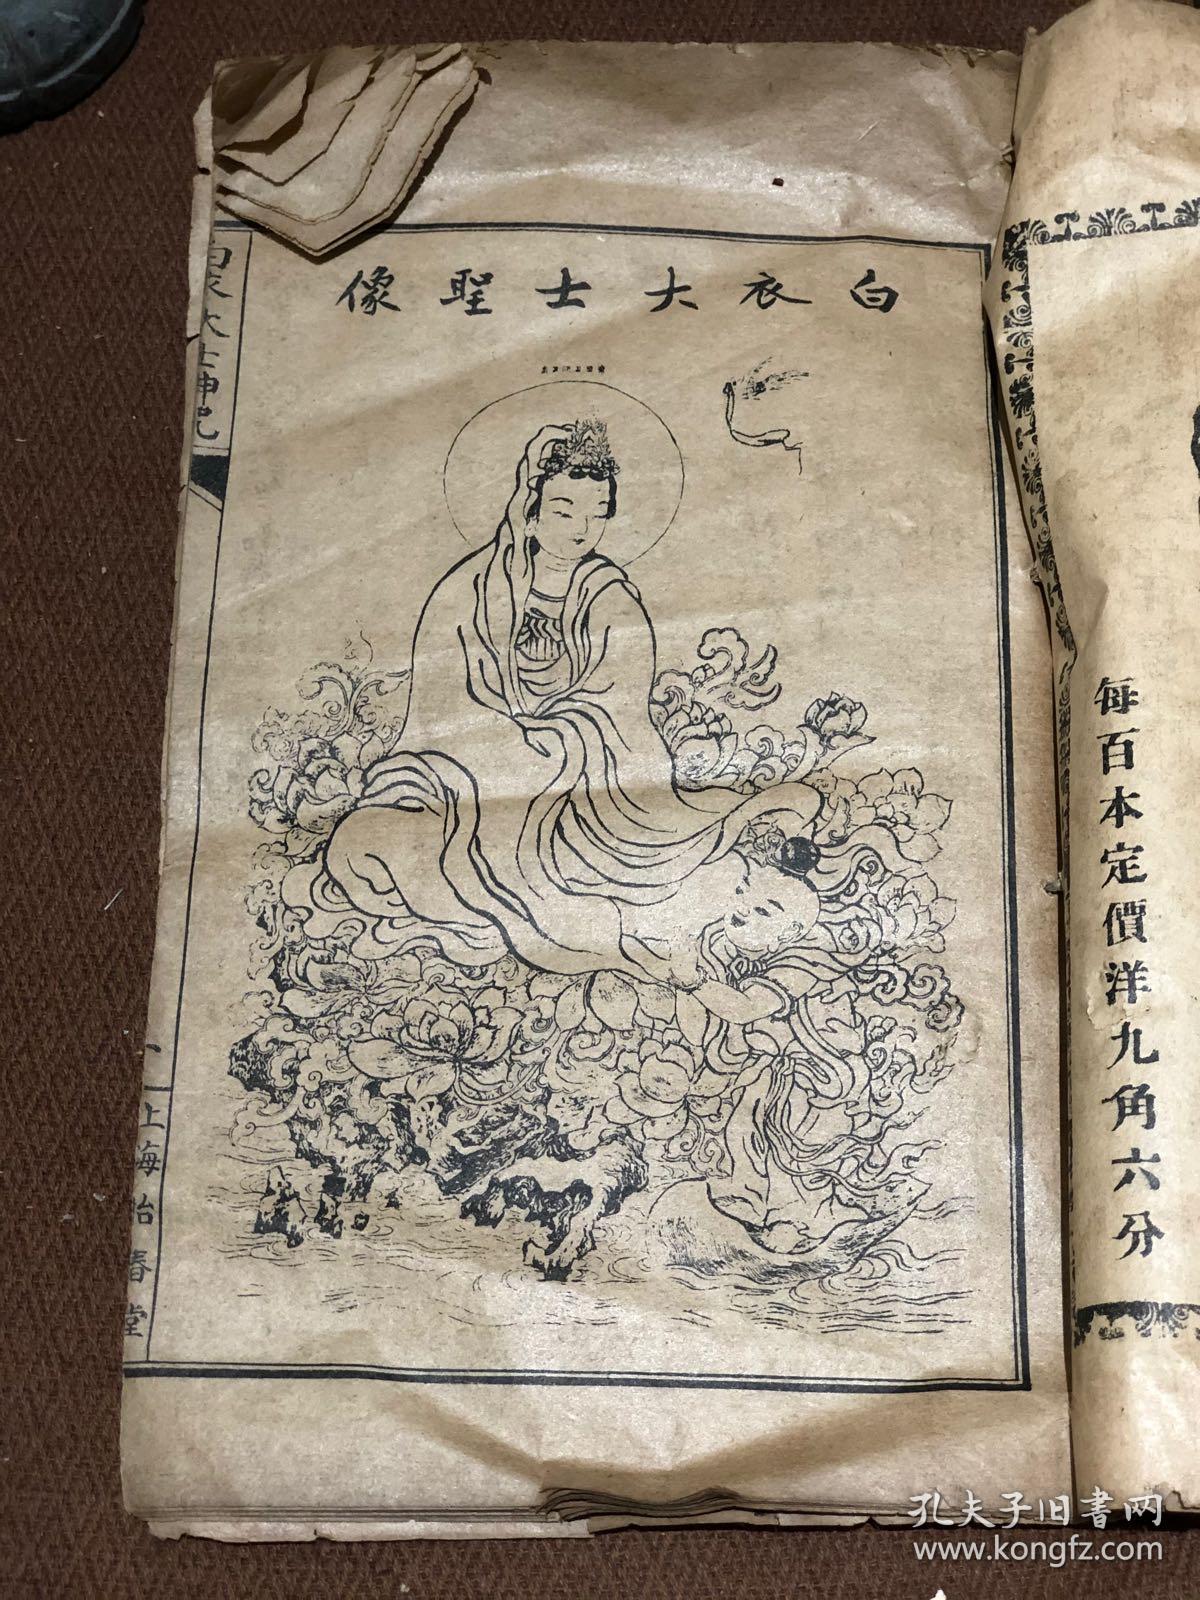 白衣大士聖像
白衣大士神咒
上海怡春堂
每百本定價洋九角六分
孔夫子旧书网
www.kongfz.com